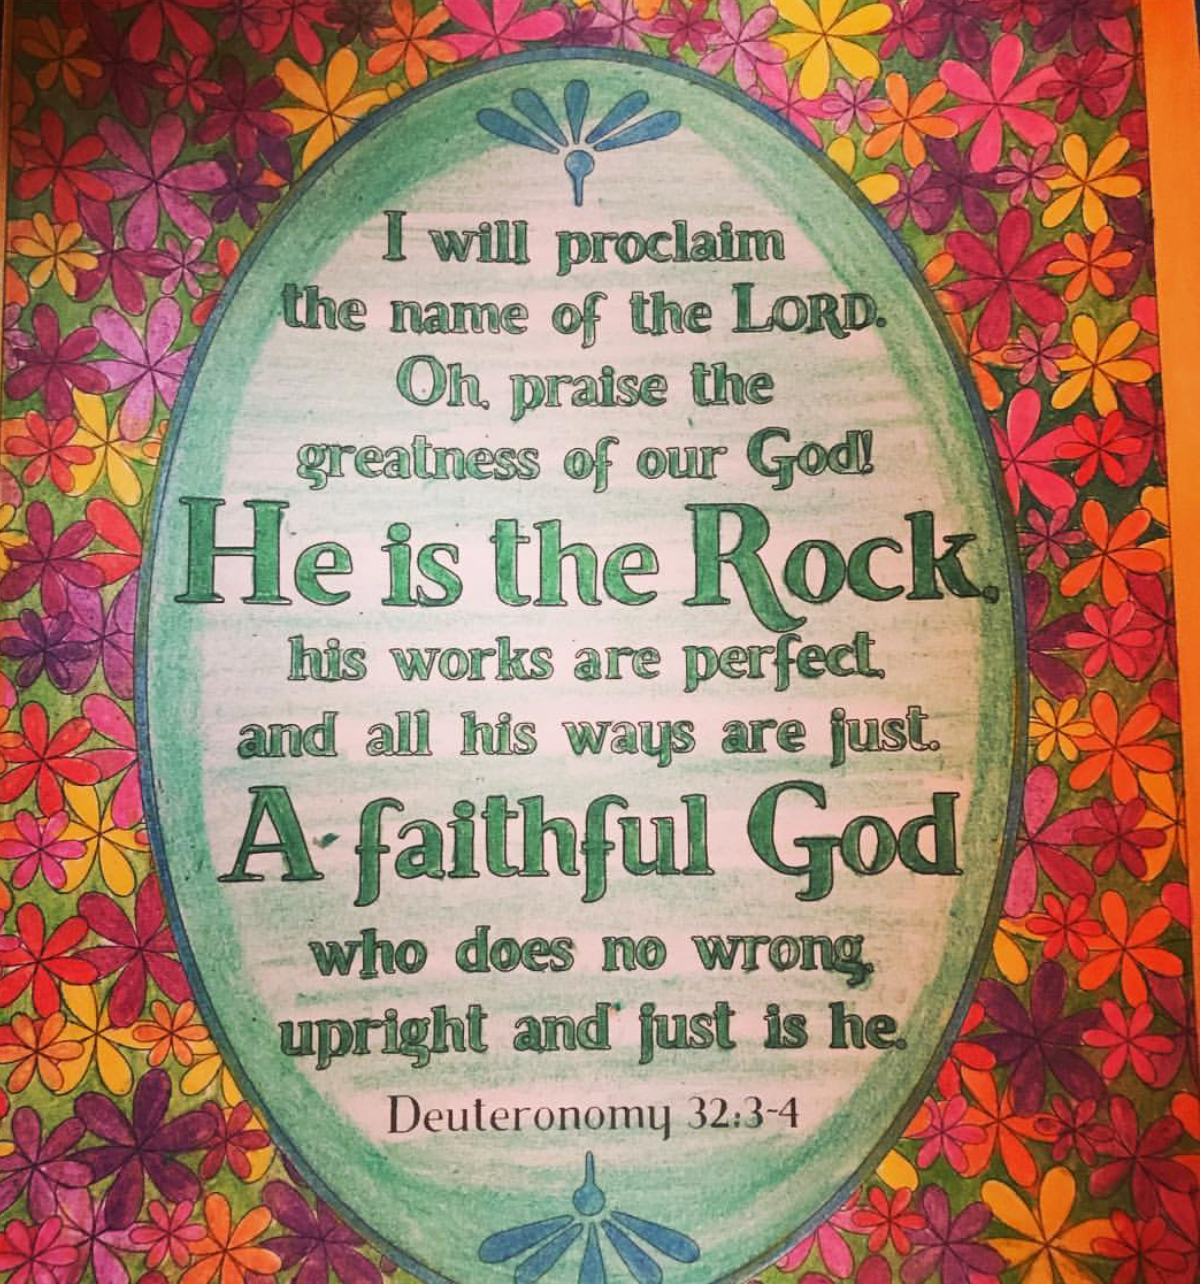 I will proclaim
the name of the LORD.
Oh, praise the
greatness of our God!
He is the Rock,
his works are perfect,
and all his ways are just.
A faithful God
who does no wrong,
upright and just is he.
Deuteronomy 32:3-4